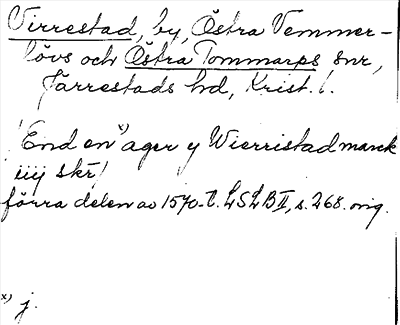 Virrestad, by, Östra Vemmer-
lövs och Östra Tommarps snr,
Järrestads hd, Krist. l.
! End en x) ager y Wierristad marck
iiij skr !
förra delen av 1570-t. LSLB II, s. 268. orig.
x) j.